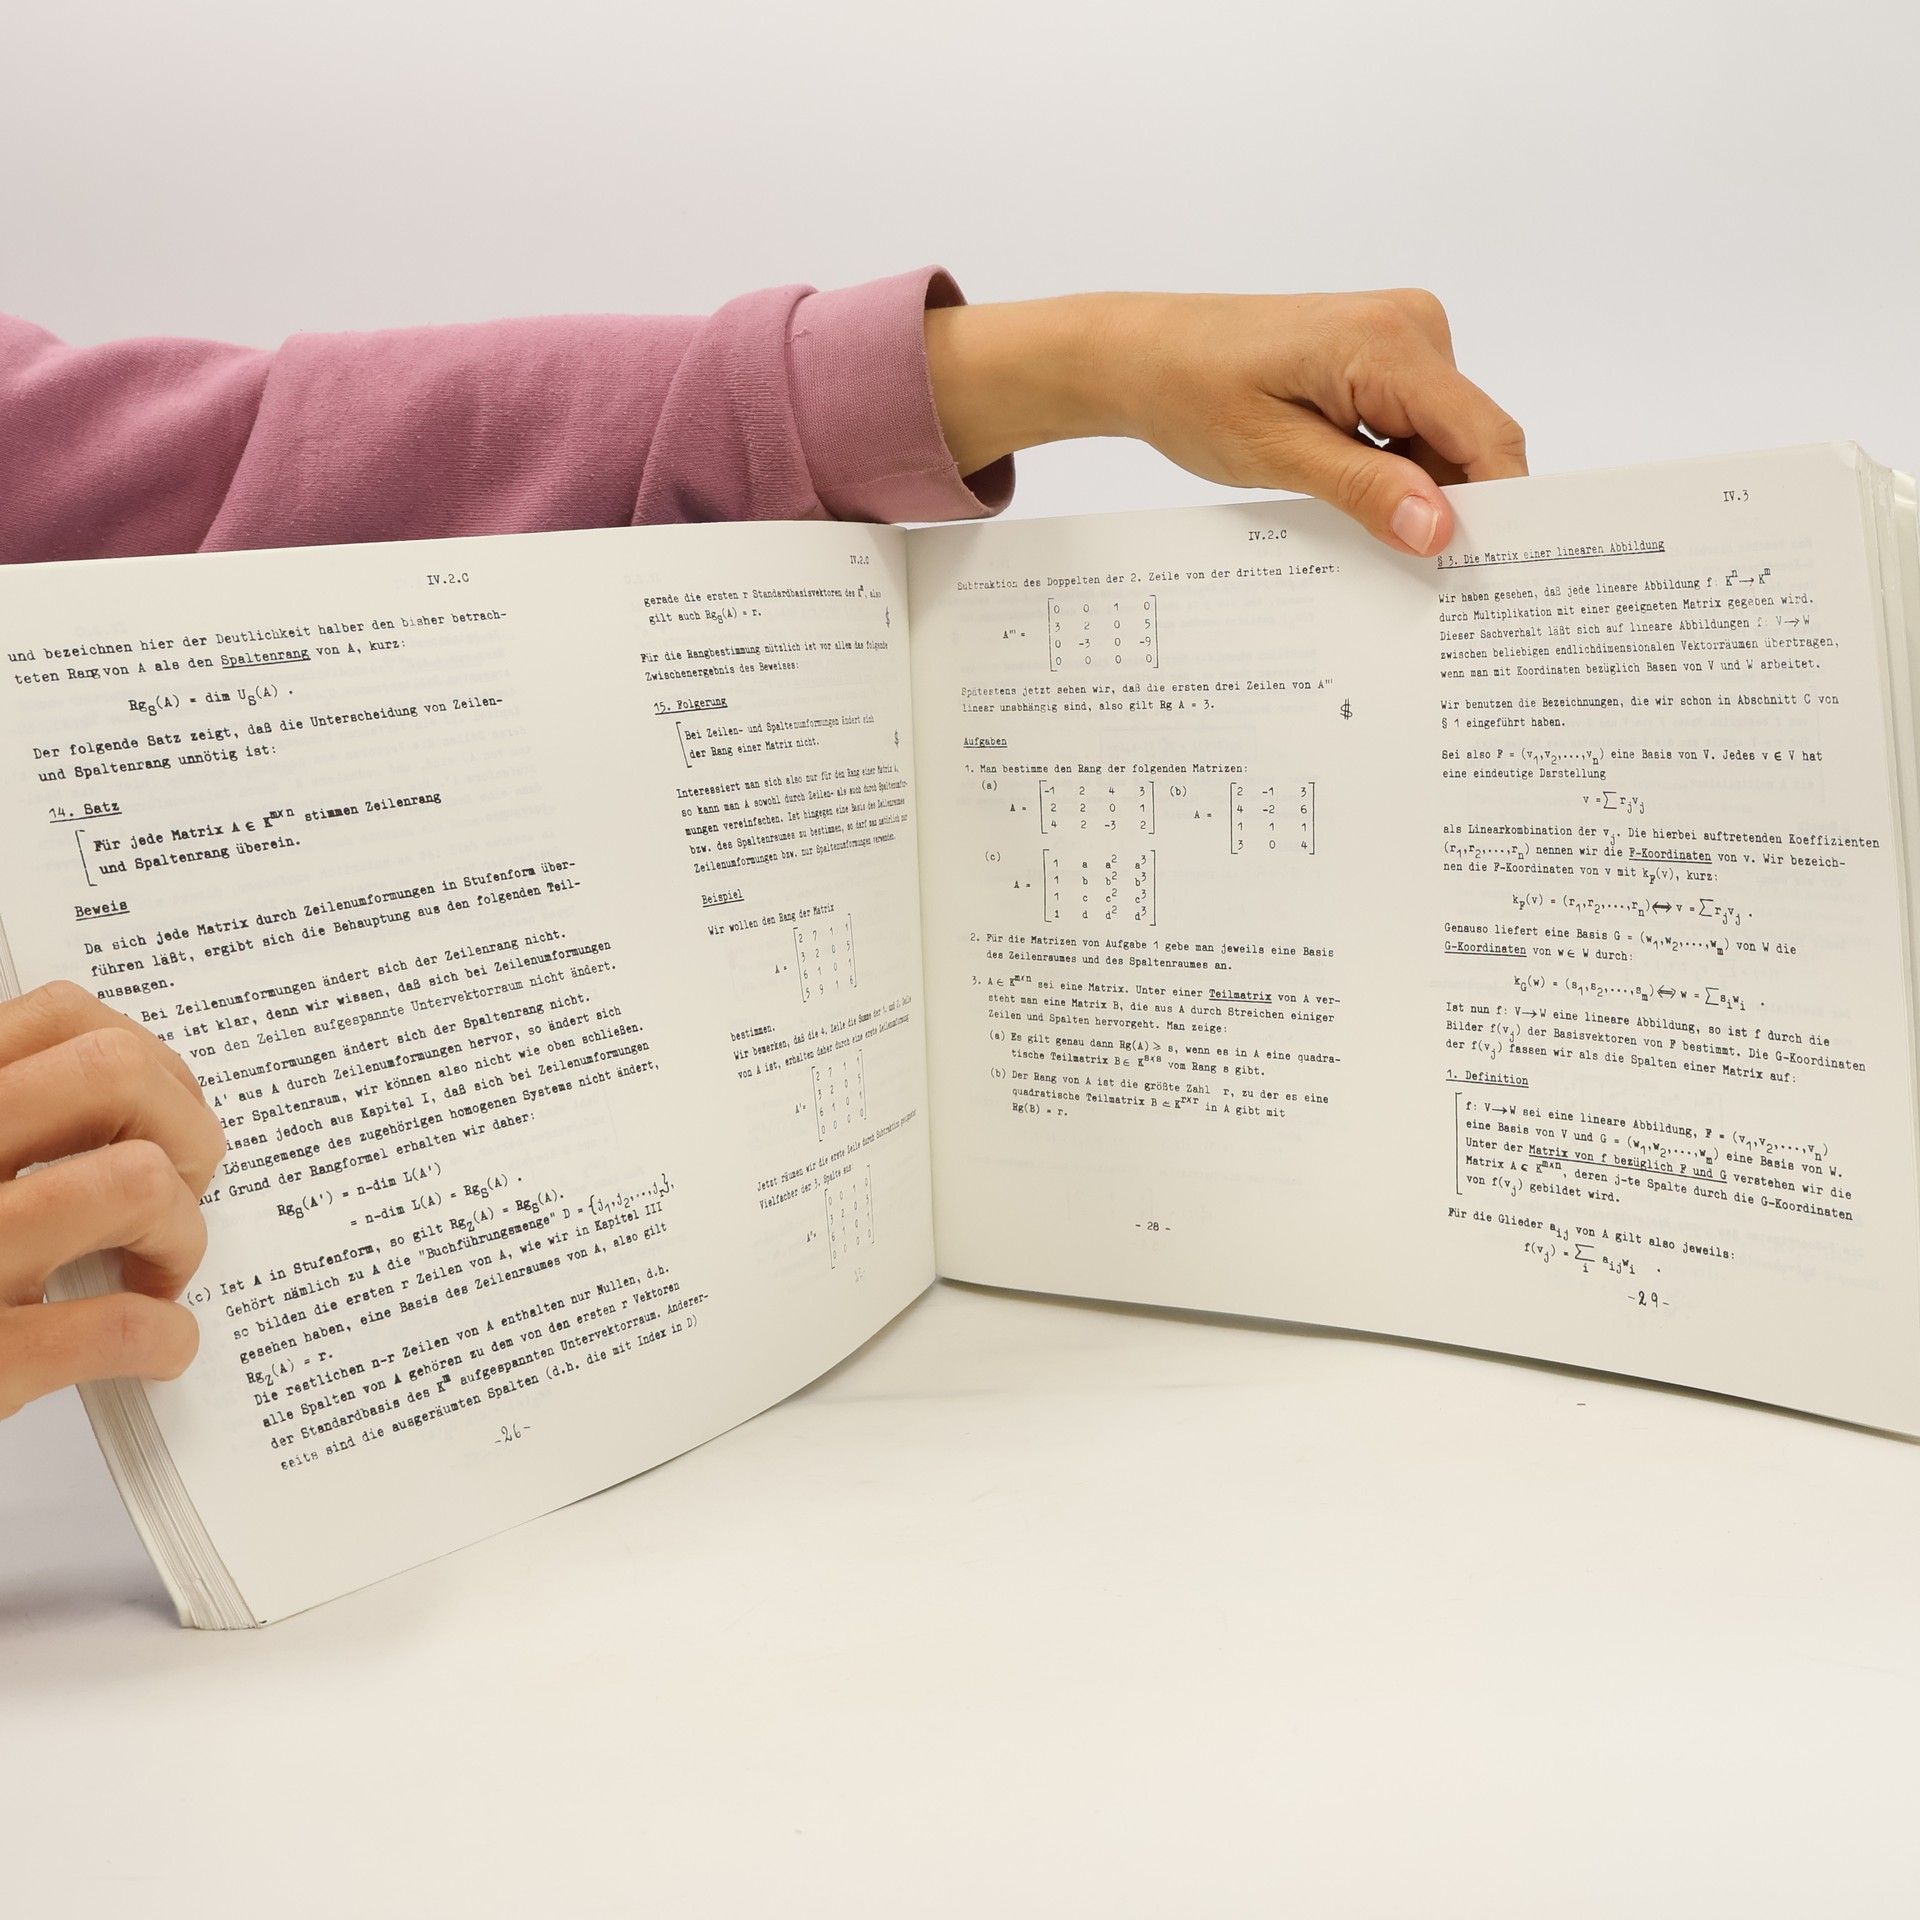 IV.2.C
und bezeichnen hier der Deutlichkeit halber den bisher betrach-
teten Rang von A als den Spaltenrang von A, kurz:
Rg_S(A) = dim U_S(A) .
Der folgende Satz zeigt, daß die Unterscheidung von Zeilen-
und Spaltenrang unnötig ist:
14. Satz
Für jede Matrix A ∈ K^{m×n} stimmen Zeilenrang
und Spaltenrang überein.
Beweis
Da sich jede Matrix durch Zeilenumformungen in Stufenform über-
führen läßt, ergibt sich die Behauptung aus den folgenden Teil-
aussagen.
Bei Zeilenumformungen ändert sich der Zeilenrang nicht.
ist klar, denn wir wissen, daß sich bei Zeilenumformungen
von den Zeilen aufgespannte Untervektorraum nicht ändert.
Zeilenumformungen ändert sich der Spaltenrang nicht.
A' aus A durch Zeilenumformungen hervor, so ändert sich
der Spaltenraum, wir können also nicht wie oben schließen.
jedoch aus Kapitel I, daß sich bei Zeilenumformungen
Lösungsmenge des zugehörigen homogenen Systems nicht ändert,
auf Grund der Rangformel erhalten wir daher:
Rg_S(A') = n-dim L(A')
= n-dim L(A) = Rg_S(A) .
(c) Ist A in Stufenform, so gilt Rg_Z(A) = Rg_S(A).
Gehört nämlich zu A die "Buchführungsmenge" D = {j_1,j_2,...,j_r},
so bilden die ersten r Zeilen von A, wie wir in Kapitel III
gesehen haben, eine Basis des Zeilenraumes von A, also gilt
Rg_Z(A) = r.
Die restlichen n-r Zeilen von A enthalten nur Nullen, d.h.
alle Spalten von A gehören zu dem von den ersten r Vektoren
der Standardbasis des K^m aufgespannten Untervektorraum. Anderer-
seits sind die ausgeräumten Spalten (d.h. die mit Index in D)
-26-
IV.2.C
gerade die ersten r Standardbasisvektoren des K^m, also
gilt auch Rg_S(A) = r.
$
Für die Rangbestimmung nützlich ist vor allem das folgende
Zwischenergebnis des Beweises:
15. Folgerung
Bei Zeilen- und Spaltenumformungen ändert sich
der Rang einer Matrix nicht.
$
Interessiert man sich also nur für den Rang einer Matrix A,
so kann man A sowohl durch Zeilen- als auch durch Spaltenumfor-
mungen vereinfachen. Ist hingegen eine Basis des Zeilenraumes
bzw. des Spaltenraumes zu bestimmen, so darf man natürlich nur
Zeilenumformungen bzw. nur Spaltenumformungen verwenden.
Beispiel
Wir wollen den Rang der Matrix
2 7 1 1
3 2 0 5
A = 6 1 0 1
5 9 1 6
bestimmen.
Wir bemerken, daß die 4. Zeile die Summe der 1. und 2. Zeile
von A ist, erhalten daher durch eine erste Zeilenumformung
2 7 1 1
3 2 0 5
A'= 6 1 0 1
0 0 0 0
Jetzt räumen wir die erste Zeile durch Subtraktion geeigneter
Vielfacher der 3. Spalte aus:
0 0 1 0
3 2 0 5
A''= 6 1 0 1
0 0 0 0
IV.2.C
Subtraktion des Doppelten der 2. Zeile von der dritten liefert:
0 0 1 0
A''' = 3 2 0 5
0 -3 0 -9
0 0 0 0
Spätestens jetzt sehen wir, daß die ersten drei Zeilen von A'''
linear unabhängig sind, also gilt Rg A = 3.
$
Aufgaben
1. Man bestimme den Rang der folgenden Matrizen:
(a) -1 2 4 3 (b) 2 -1 3
A = 2 2 0 1 A = 4 -2 6
4 2 -3 2 1 1 1
3 0 4
(c) 1 a a^2 a^3
A = 1 b b^2 b^3
1 c c^2 c^3
1 d d^2 d^3
2. Für die Matrizen von Aufgabe 1 gebe man jeweils eine Basis
des Zeilenraumes und des Spaltenraumes an.
3. A ∈ K^{m×n} sei eine Matrix. Unter einer Teilmatrix von A ver-
steht man eine Matrix B, die aus A durch Streichen einiger
Zeilen und Spalten hervorgeht. Man zeige:
(a) Es gilt genau dann Rg(A) ⩾ s, wenn es in A eine quadra-
tische Teilmatrix B ∈ K^{s×s} vom Rang s gibt.
(b) Der Rang von A ist die größte Zahl r, zu der es eine
quadratische Teilmatrix B ∈ K^{r×r} in A gibt mit
Rg(B) = r.
- 28 -
IV.3
§ 3. Die Matrix einer linearen Abbildung
Wir haben gesehen, daß jede lineare Abbildung f: K^n → K^m
durch Multiplikation mit einer geeigneten Matrix gegeben wird.
Dieser Sachverhalt läßt sich auf lineare Abbildungen f: V → W
zwischen beliebigen endlichdimensionalen Vektorräumen übertragen,
wenn man mit Koordinaten bezüglich Basen von V und W arbeitet.
Wir benutzen die Bezeichnungen, die wir schon in Abschnitt C von
§ 1 eingeführt haben.
Sei also F = (v_1,v_2,...,v_n) eine Basis von V. Jedes v ∈ V hat
eine eindeutige Darstellung
v = ∑ r_j v_j
als Linearkombination der v_j. Die hierbei auftretenden Koeffizienten
(r_1,r_2,...,r_n) nennen wir die F-Koordinaten von v. Wir bezeich-
nen die F-Koordinaten von v mit k_F(v), kurz:
k_F(v) = (r_1,r_2,...,r_n) ⟺ v = ∑ r_j v_j .
Genauso liefert eine Basis G = (w_1,w_2,...,w_m) von W die
G-Koordinaten von w ∈ W durch:
k_G(w) = (s_1,s_2,...,s_m) ⟺ w = ∑ s_i w_i .
Ist nun f: V → W eine lineare Abbildung, so ist f durch die
Bilder f(v_j) der Basisvektoren von F bestimmt. Die G-Koordinaten
der f(v_j) fassen wir als die Spalten einer Matrix auf:
1. Definition
f: V → W sei eine lineare Abbildung, F = (v_1,v_2,...,v_n)
eine Basis von V und G = (w_1,w_2,...,w_m) eine Basis von W.
Unter der Matrix von f bezüglich F und G verstehen wir die
Matrix A ∈ K^{m×n}, deren j-te Spalte durch die G-Koordinaten
von f(v_j) gebildet wird.
Für die Glieder a_ij von A gilt also jeweils:
f(v_j) = ∑_i a_ij w_i .
-29-